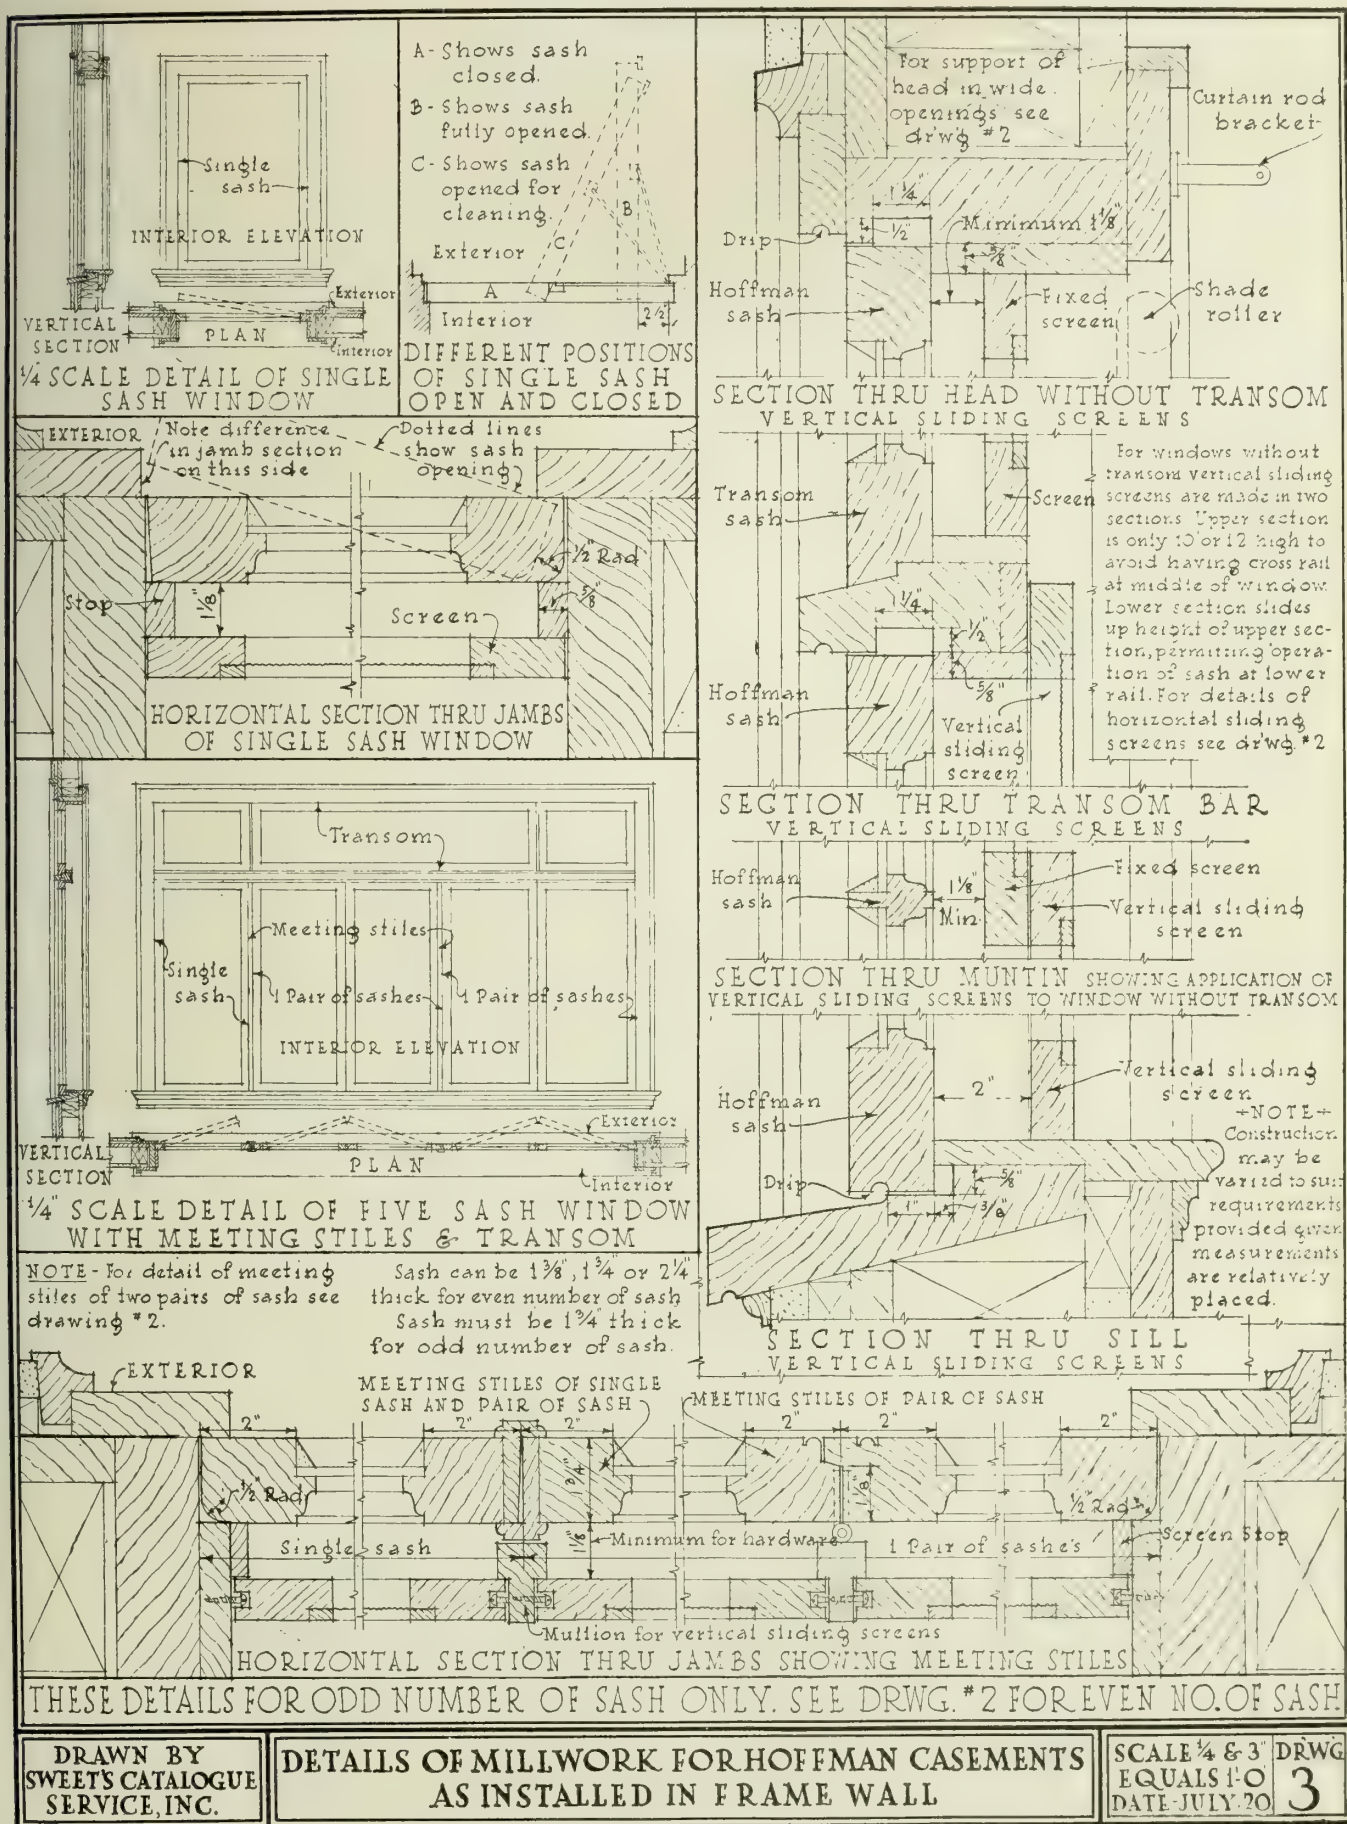 Single
sash
INTERIOR ELEVATION
Exterior
VERTICAL
SECTION
PLAN
Interior
1/4 SCALE DETAIL OF SINGLE
SASH WINDOW
A- Shows sash
closed.
B- Shows sash
fully opened.
C- Shows sash
opened for
cleaning.
Exterior
B
C
A
Interior
2 1/2"
DIFFERENT POSITIONS
OF SINGLE SASH
OPEN AND CLOSED
For support of
head in wide
openings see
dr'wg #2
Curtain rod
bracket
1 1/4"
Minimum 1 1/8"
1/2"
Drip
5/8"
Hoffman
sash
Fixed
screen
Shade
roller
SECTION THRU HEAD WITHOUT TRANSOM
VERTICAL SLIDING SCREENS
EXTERIOR
Note difference
in jamb section
on this side
Dotted lines
show sash
opening
1/2" Rad
Stop
1 1/8"
5/8"
Screen
HORIZONTAL SECTION THRU JAMBS
OF SINGLE SASH WINDOW
Transom
sash
Screen
1 1/4"
1/2"
5/8"
Hoffman
sash
Vertical
sliding
screen
For windows without
transom vertical sliding
screens are made in two
sections Upper section
is only 10 or 12 high to
avoid having cross rail
at middle of window.
Lower section slides
up height of upper sec-
tion, permitting opera-
tion of sash at lower
rail. For details of
horizontal sliding
screens see dr'wg. #2
SECTION THRU TRANSOM BAR
VERTICAL SLIDING SCREENS
Transom
Meeting stiles
Single
sash
1 Pair of sashes
1 Pair of sashes
INTERIOR ELEVATION
Exterior
VERTICAL
SECTION
PLAN
Interior
1/4" SCALE DETAIL OF FIVE SASH WINDOW
WITH MEETING STILES & TRANSOM
Hoffman
sash
1 1/8"
Min.
Fixed screen
Vertical sliding
screen
SECTION THRU MUNTIN SHOWING APPLICATION OF
VERTICAL SLIDING SCREENS TO WINDOW WITHOUT TRANSOM
Hoffman
sash
2"
Vertical sliding
screen
Drip
5/8"
1"
3/8"
-NOTE-
Construction
may be
varied to suit
requirements
provided given
measurements
are relatively
placed.
SECTION THRU SILL
VERTICAL SLIDING SCREENS
NOTE - For detail of meeting
stiles of two pairs of sash see
drawing #2.
Sash can be 1 3/8", 1 3/4 or 2 1/4"
thick for even number of sash
Sash must be 1 3/4" thick
for odd number of sash.
EXTERIOR
MEETING STILES OF SINGLE
SASH AND PAIR OF SASH
MEETING STILES OF PAIR OF SASH
2"
2"
2"
2"
2"
2"
1 3/4"
1 1/8"
1/2" Rad
1/2" Rad
Single sash
1 1/8"
Minimum for hardware
1 Pair of sashe's
Screen Stop
Mullion for vertical sliding screens
HORIZONTAL SECTION THRU JAMBS SHOWING MEETING STILES
THESE DETAILS FOR ODD NUMBER OF SASH ONLY. SEE DRWG. #2 FOR EVEN NO. OF SASH
DRAWN BY
SWEET'S CATALOGUE
SERVICE, INC.
DETAILS OF MILLWORK FOR HOFFMAN CASEMENTS
AS INSTALLED IN FRAME WALL
SCALE 1/4 & 3"
EQUALS 1'-0
DATE-JULY-20
DRWG
3